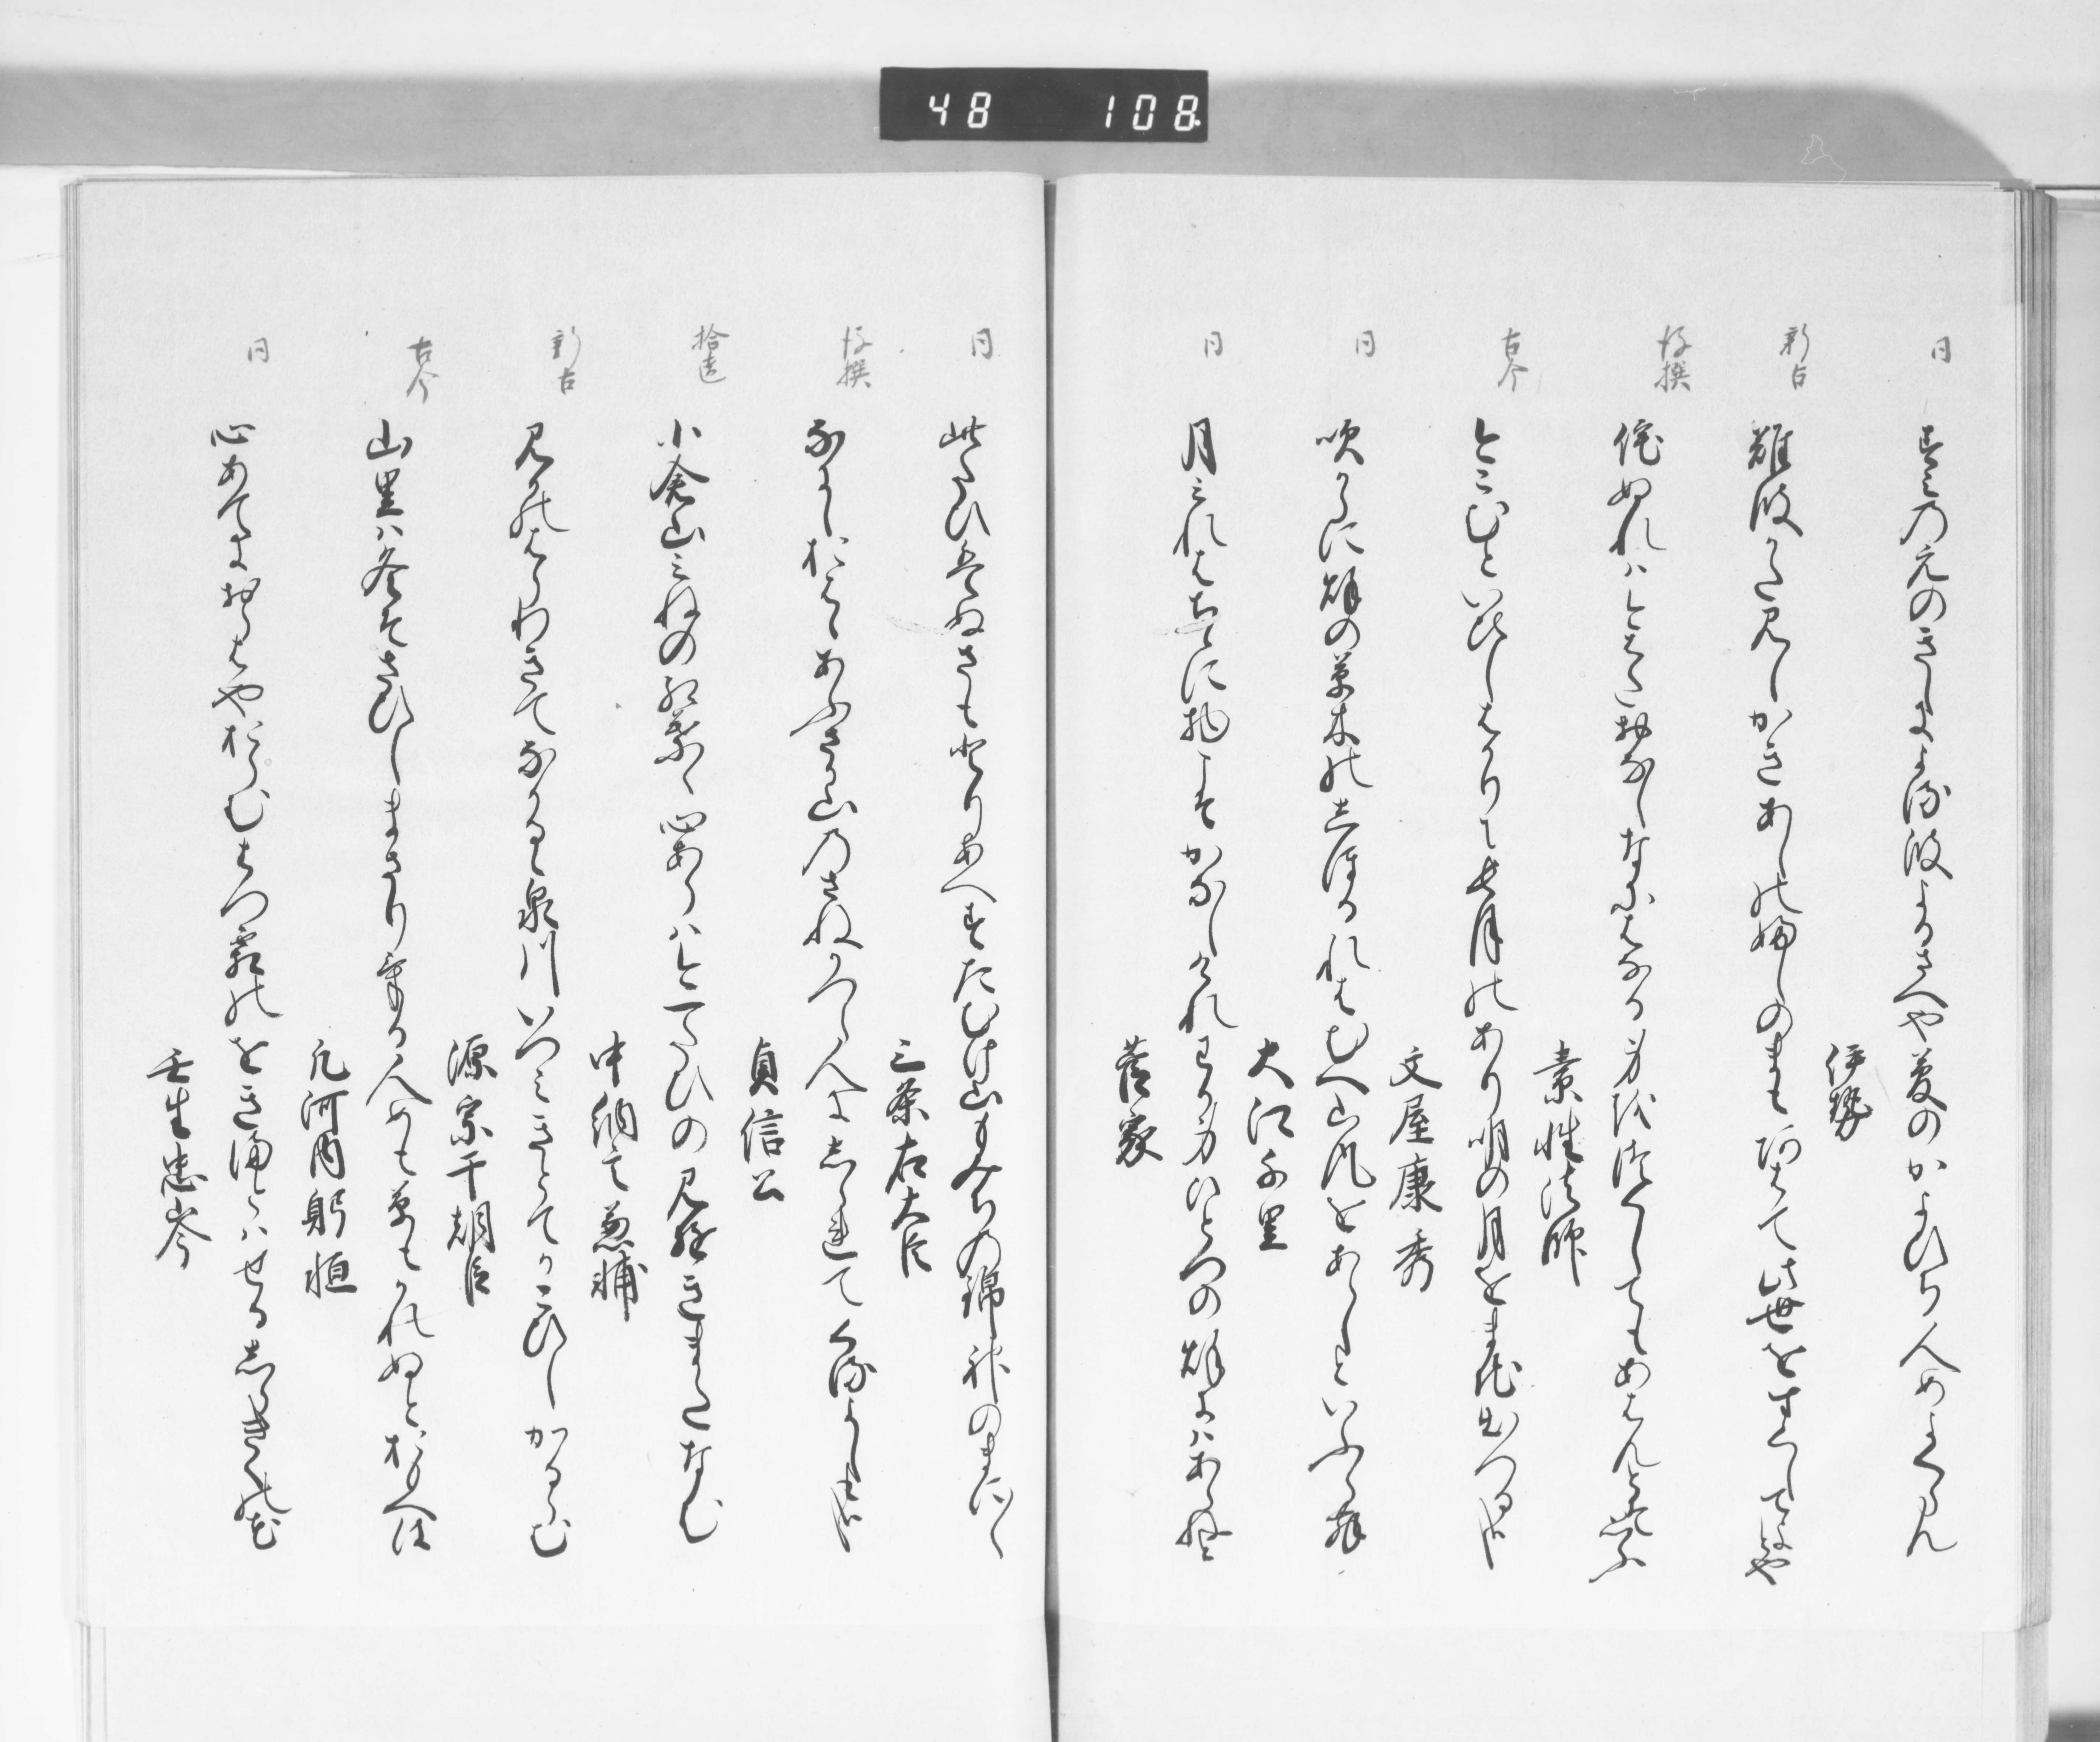 48 108
同
すみの元のきしによる波よるさへや夢のかよひち人めよくらん
伊勢
新古
難波かたみしかきあしのふしのまもあはて此世をすくしてよとや
後撰
侘ぬれハ今はたおなしなにはなる身をつくしてもあはんとそ思ふ
素性法師
古今
今こむといひしはかりに長月のあり明の月をまち出つるかな
文屋康秀
同
吹からに秋の草木のしほるれはむへ山風をあらしといふらむ
大江千里
同
月みれはちゝに物こそかなしけれわか身ひとつの秋にハあらねと
菅家
同
此たひはぬさもとりあへすたむけ山もみちの錦神のまに〳〵
三条右大臣
後撰
名にしおはゝあふさか山のさねかつら人にしられてくるよしもかな
貞信公
拾遺
小倉山みねの紅葉ゝ心あらハ今一たひの見ゆきまたなむ
中納言兼輔
新古
見かのはらわきてなかるゝ泉川いつみきとてかこひしかるらむ
源宗于朝臣
古今
山里ハ冬そさひしまさりける人めも草もかれぬとおもへは
凡河内躬恒
同
心あてにおらはやおらむはつ霜のをきまとハせるしらきくの花
壬生忠岑